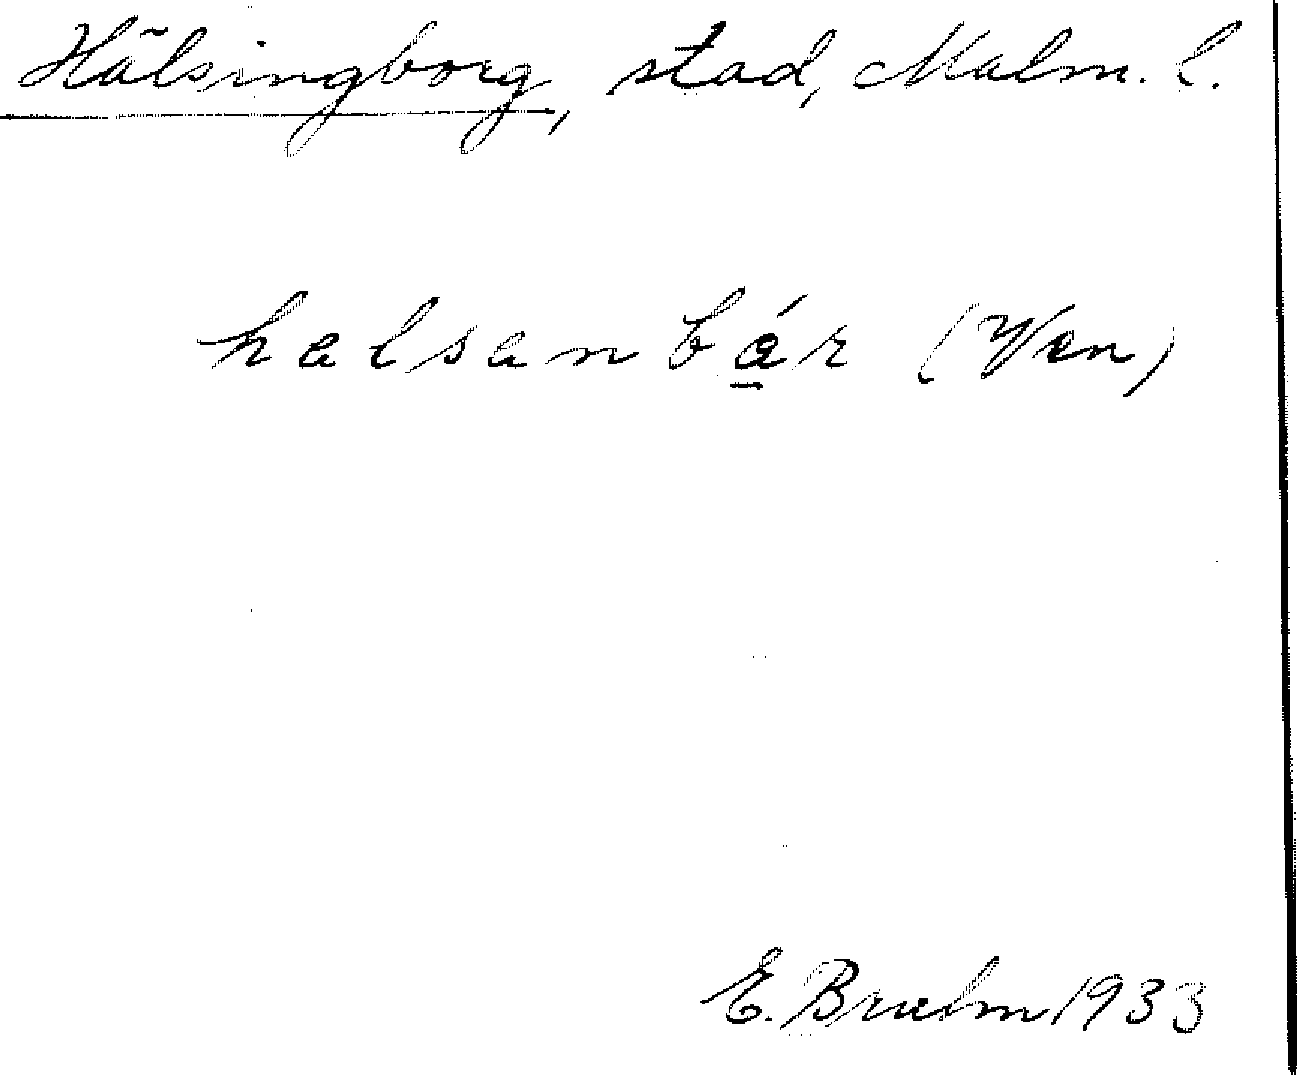 Hälsingborg, stad, Malm. l.
halsanbá̲r (Ven)
E. Bruhn 1933